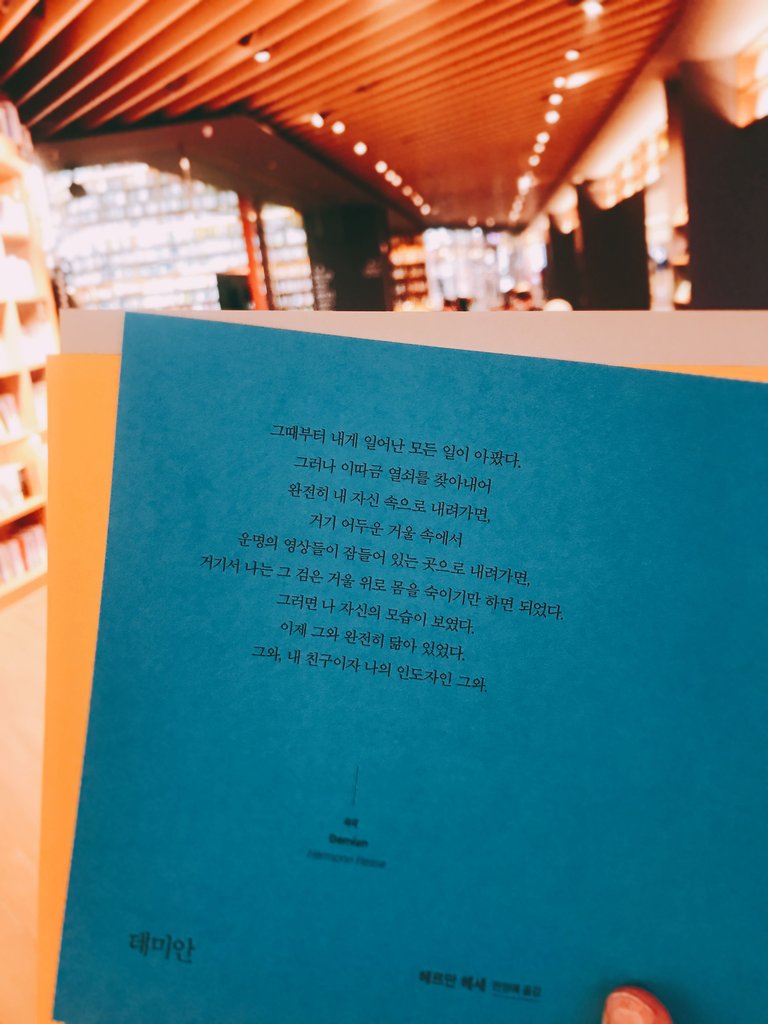 그때부터 내게 일어난 모든 일이 아팠다.
그러나 이따금 열쇠를 찾아내어
완전히 내 자신 속으로 내려가면,
거기 어두운 거울 속에서
운명의 영상들이 잠들어 있는 곳으로 내려가면,
거기서 나는 그 검은 거울 위로 몸을 숙이기만 하면 되었다.
그러면 나 자신의 모습이 보였다.
이제 그와 완전히 닮아 있었다.
그와, 내 친구이자 나의 인도자인 그와.
Demian
Hermann Hesse
데미안
헤르만 헤세 전영애 옮김